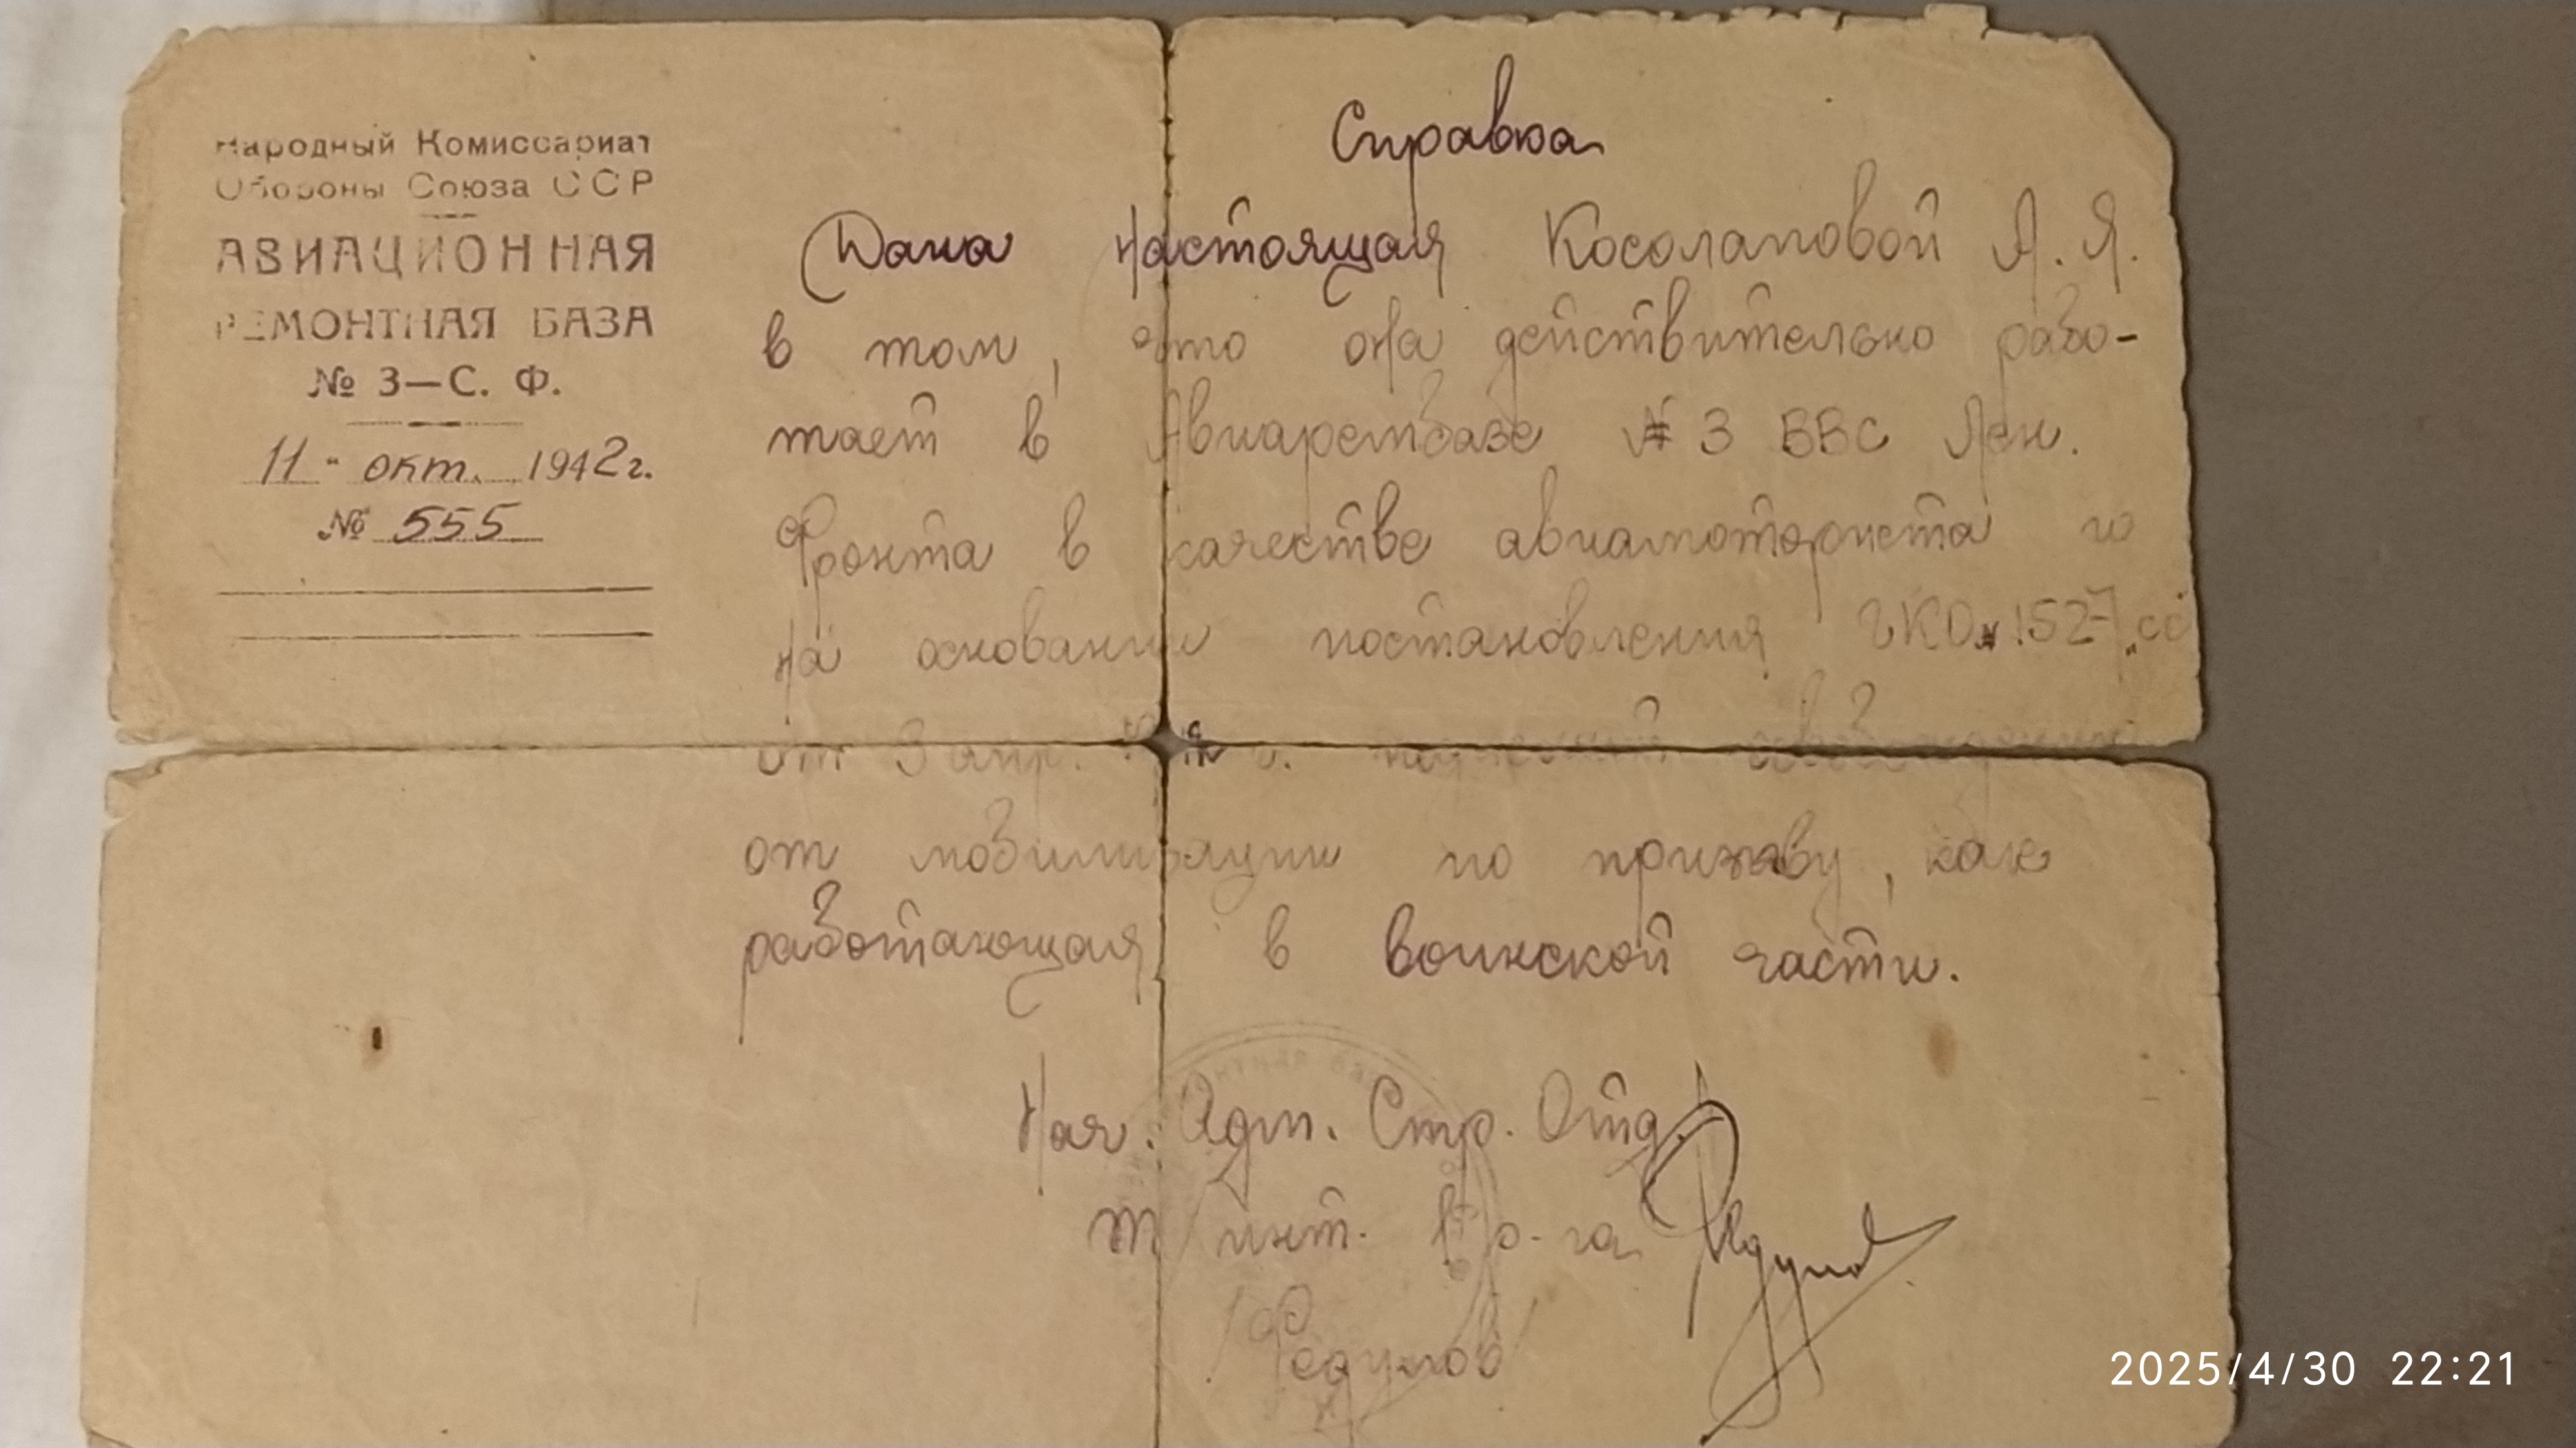 Народный Комиссариат
Обороны Союза ССР
АВИАЦИОННАЯ
РЕМОНТНАЯ БАЗА
№ 3—С. Ф.
11 " окт. 1942 г.
№ 555
Справка
Дана настоящая Косолаповой А. Я.
в том, что она действительно рабо-
тает в Авиарембазе № 3 ВВС Лен.
Фронта в качестве авиамоториста и
на основании постановления ГКО № 1527 „сс
от 3 апр. г. подлежит
от мобилизации по призыву, как
работающая в воинской части.
Нач. Адм. Стр. Отд.
т/инт. р-га
/Федунов/
2025/4/30 22:21